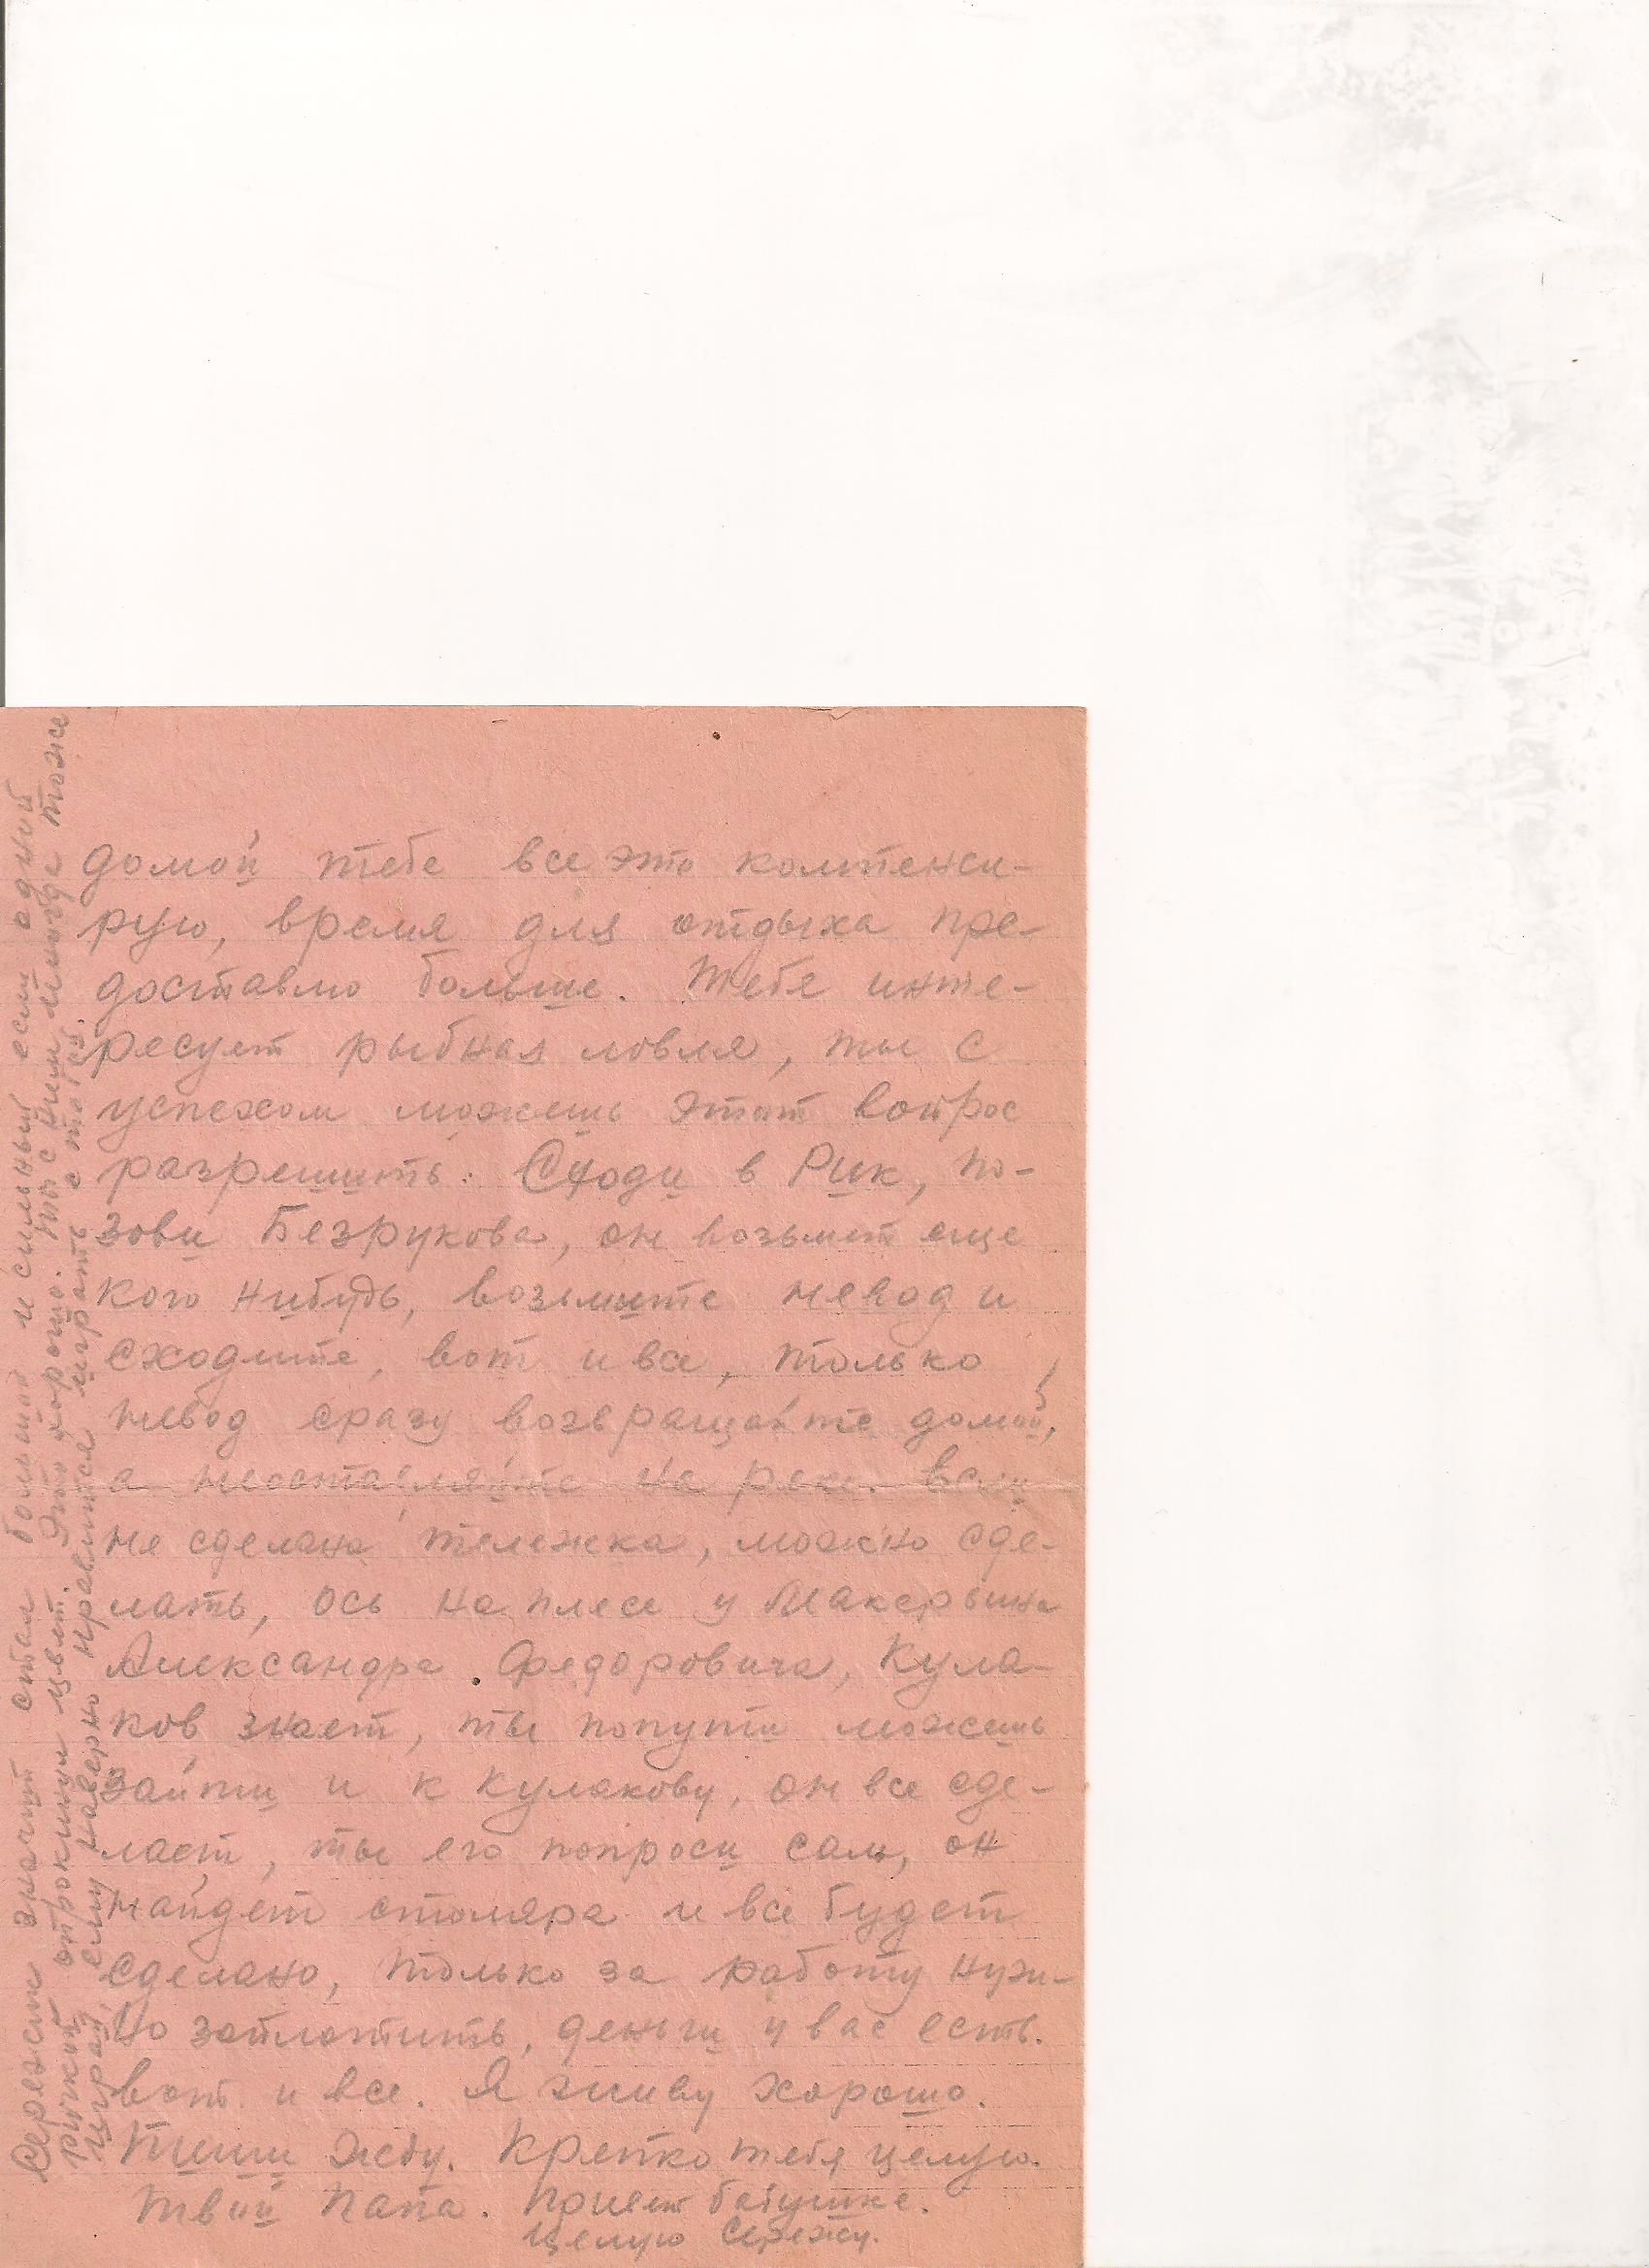 домой тебе все это компенси-
рую, время для отдыха пре-
доставлю больше. Тебя инте-
ресует рыбная ловля, ты с
успехом можешь этот вопрос
разрешить. Сходи в Рик, по-
зови Безрукова, он возьмет еще
кого нибудь, возьмите невод и
сходите, вот и все, только
невод сразу возвращайте домой,
а неоставляйте на реке. Если
не сделана тележка, можно сде-
лать, ось на плесе у
Александра Федоровича, Кула-
ков знает, ты попути можешь
зайти и к Кулакову, он все сде-
лает, ты его попроси сам, он
найдет столяра и все будет
сделано, только за работу нуж-
но заплатить, деньги у вас есть.
вот и все. Я живу хорошо.
Пиши жду. Крепко тебя целую.
Твой папа. Привет бабушке.
Целую Сережу.
Сережа значит стал большой и сильный если одной
рукой опрокинул цвет. Это хорошо. Ты с ним иногда тоже
играй, ему наверно нравится играть с тобой.